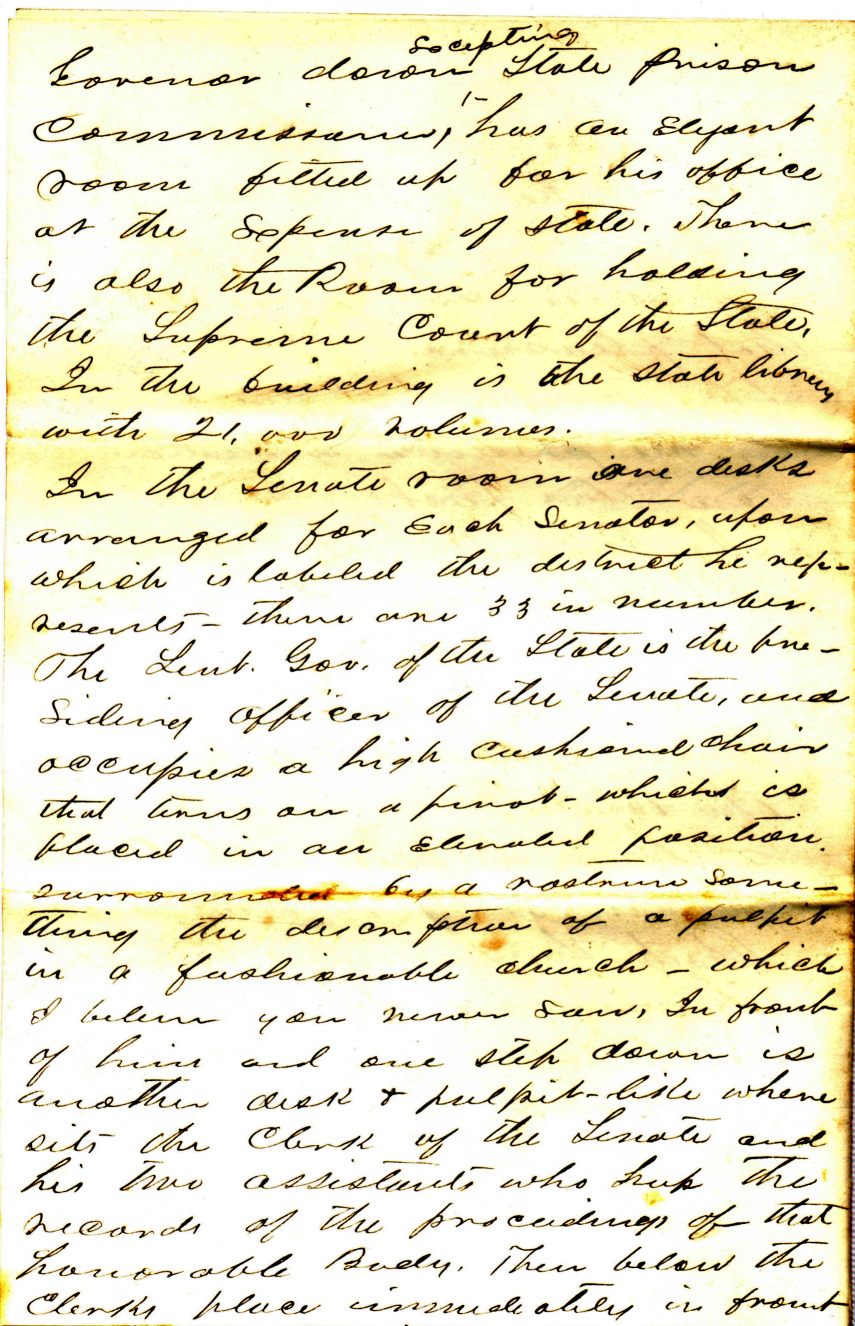 Excepting
Govenor down State prison
Commissioner, has an Elegant
room fitted up for his office
at the Expense of State. There
is also the Room for holding
the Supreme Court of the State.
In the building is the state library
with 21,000 volumes.
In the Senate room are desks
arranged for Each Senator, upon
which is labeled the district he rep-
resents - there are 33 in number.
The Leut. Gov. of the State is the pre-
siding officer of the Senate, and
occupies a high cushioned chair
that turns on a pivot - which is
placed in an Elevated position.
surrounded by a rostrum Some-
thing the description of a pulpit
in a fashionable church - which
I believe you never saw. In front
of him and one step down is
another desk & pulpit-like where
sits the Clerk of the Senate and
his two assistants who keep the
records of the proceedings of that
honorable Body. Then below the
Clerks place immediately in front